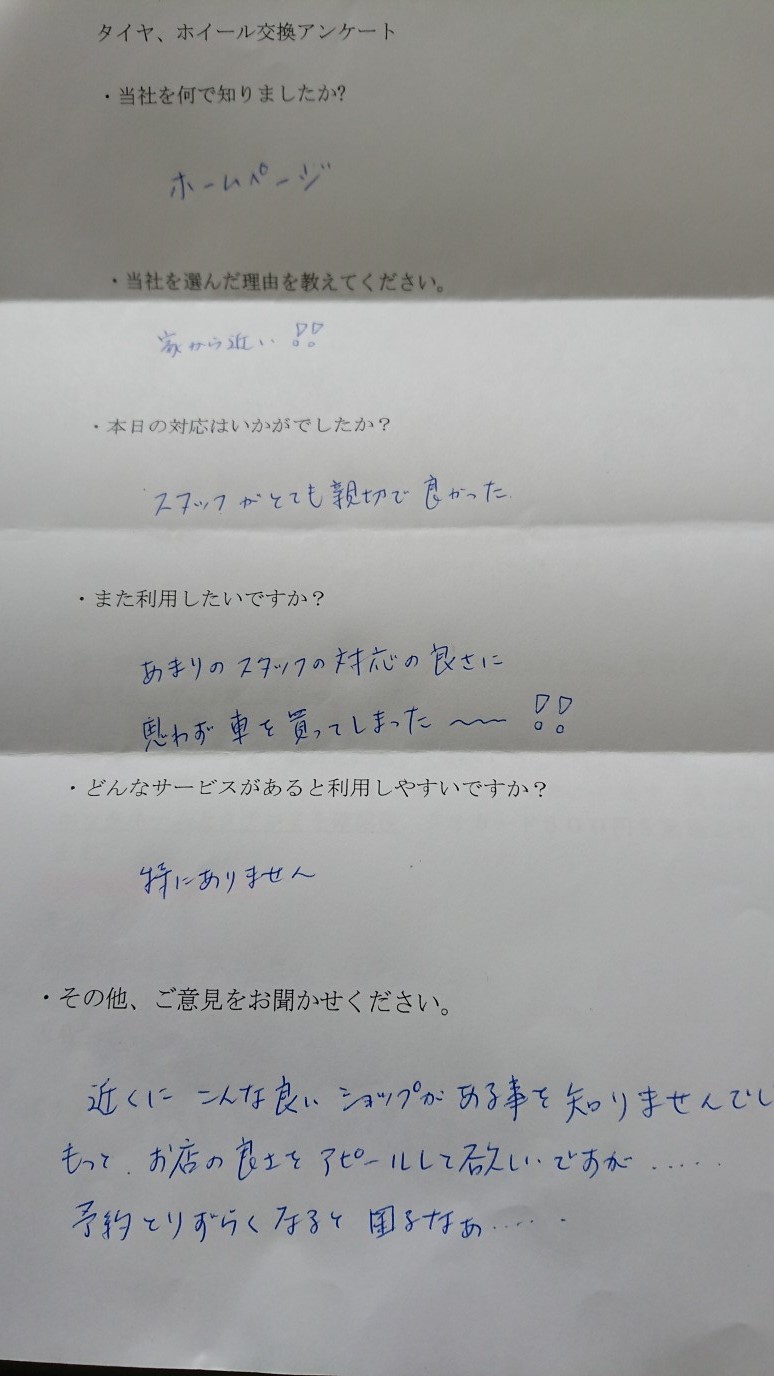 タイヤ、ホイール交換アンケート
・当社を何で知りましたか?
ホームページ
・当社を選んだ理由を教えてください。
家から近い!!
・本日の対応はいかがでしたか?
スタッフがとても親切で良かった
・また利用したいですか?
あまりのスタッフの対応の良さに
思わず車を買ってしまった〜〜!!
・どんなサービスがあると利用しやすいですか?
特にありません
・その他、ご意見をお聞かせください。
近くにこんな良いショップがある事を知りませんでし
もっと、お店の良さをアピールして欲しいですが.....
予約とりずらくなると困るなぁ.....